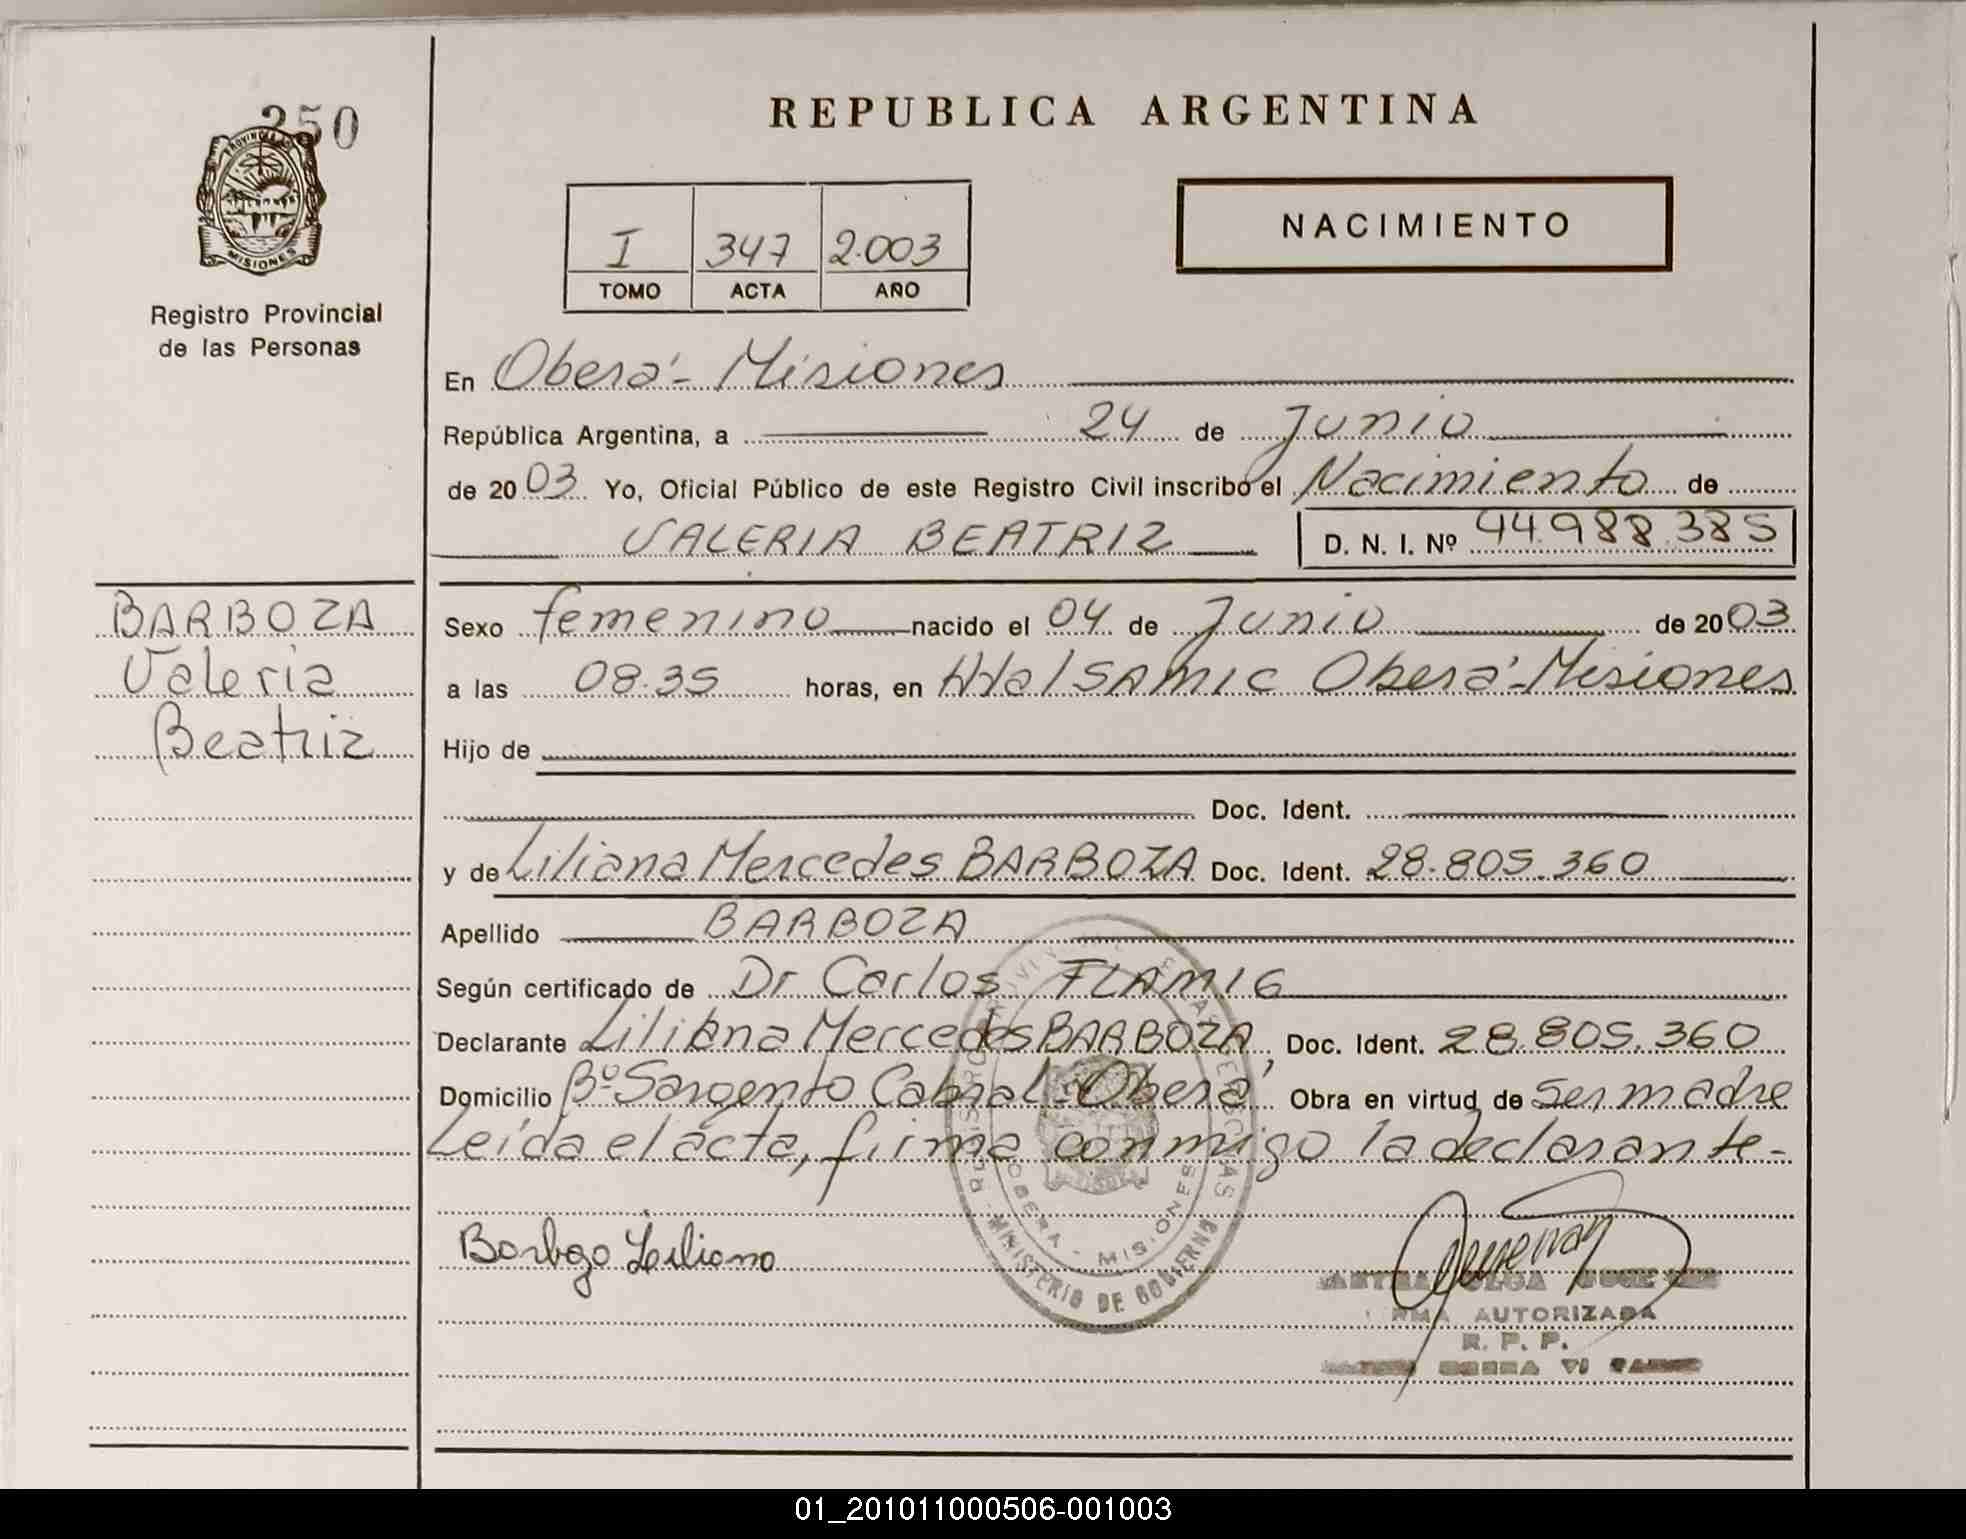 250
PROVINCIA DE
MISIONES
Registro Provincial
de las Personas
BARBOZA
Valeria
Beatriz
REPUBLICA ARGENTINA
NACIMIENTO
I 347 2.003
TOMO ACTA AÑO
En Oberá - Misiones
República Argentina, a 24 de Junio
de 2003 Yo, Oficial Público de este Registro Civil inscribo el Nacimiento de
VALERIA BEATRIZ D. N. I. Nº 44.988.385
Sexo femenino nacido el 04 de Junio de 2003
a las 08.35 horas, en SAMIC Oberá - Misiones
Hijo de
Doc. Ident.
y de Liliana Mercedes BARBOZA Doc. Ident. 28.805.360
Apellido BARBOZA
Según certificado de Dr Carlos FLAMIG
Declarante Liliana Mercedes BARBOZA, Doc. Ident. 28.805.360
Domicilio Bº Sargento Cabral - Oberá Obra en virtud de ser madre
Leída el acta, firma conmigo la declarante -
OBERA - MISIONES
MINISTERIO DE GOBIERNO
Liliana
OLGA
AUTORIZADA
R. P. P.
01_201011000506-001003